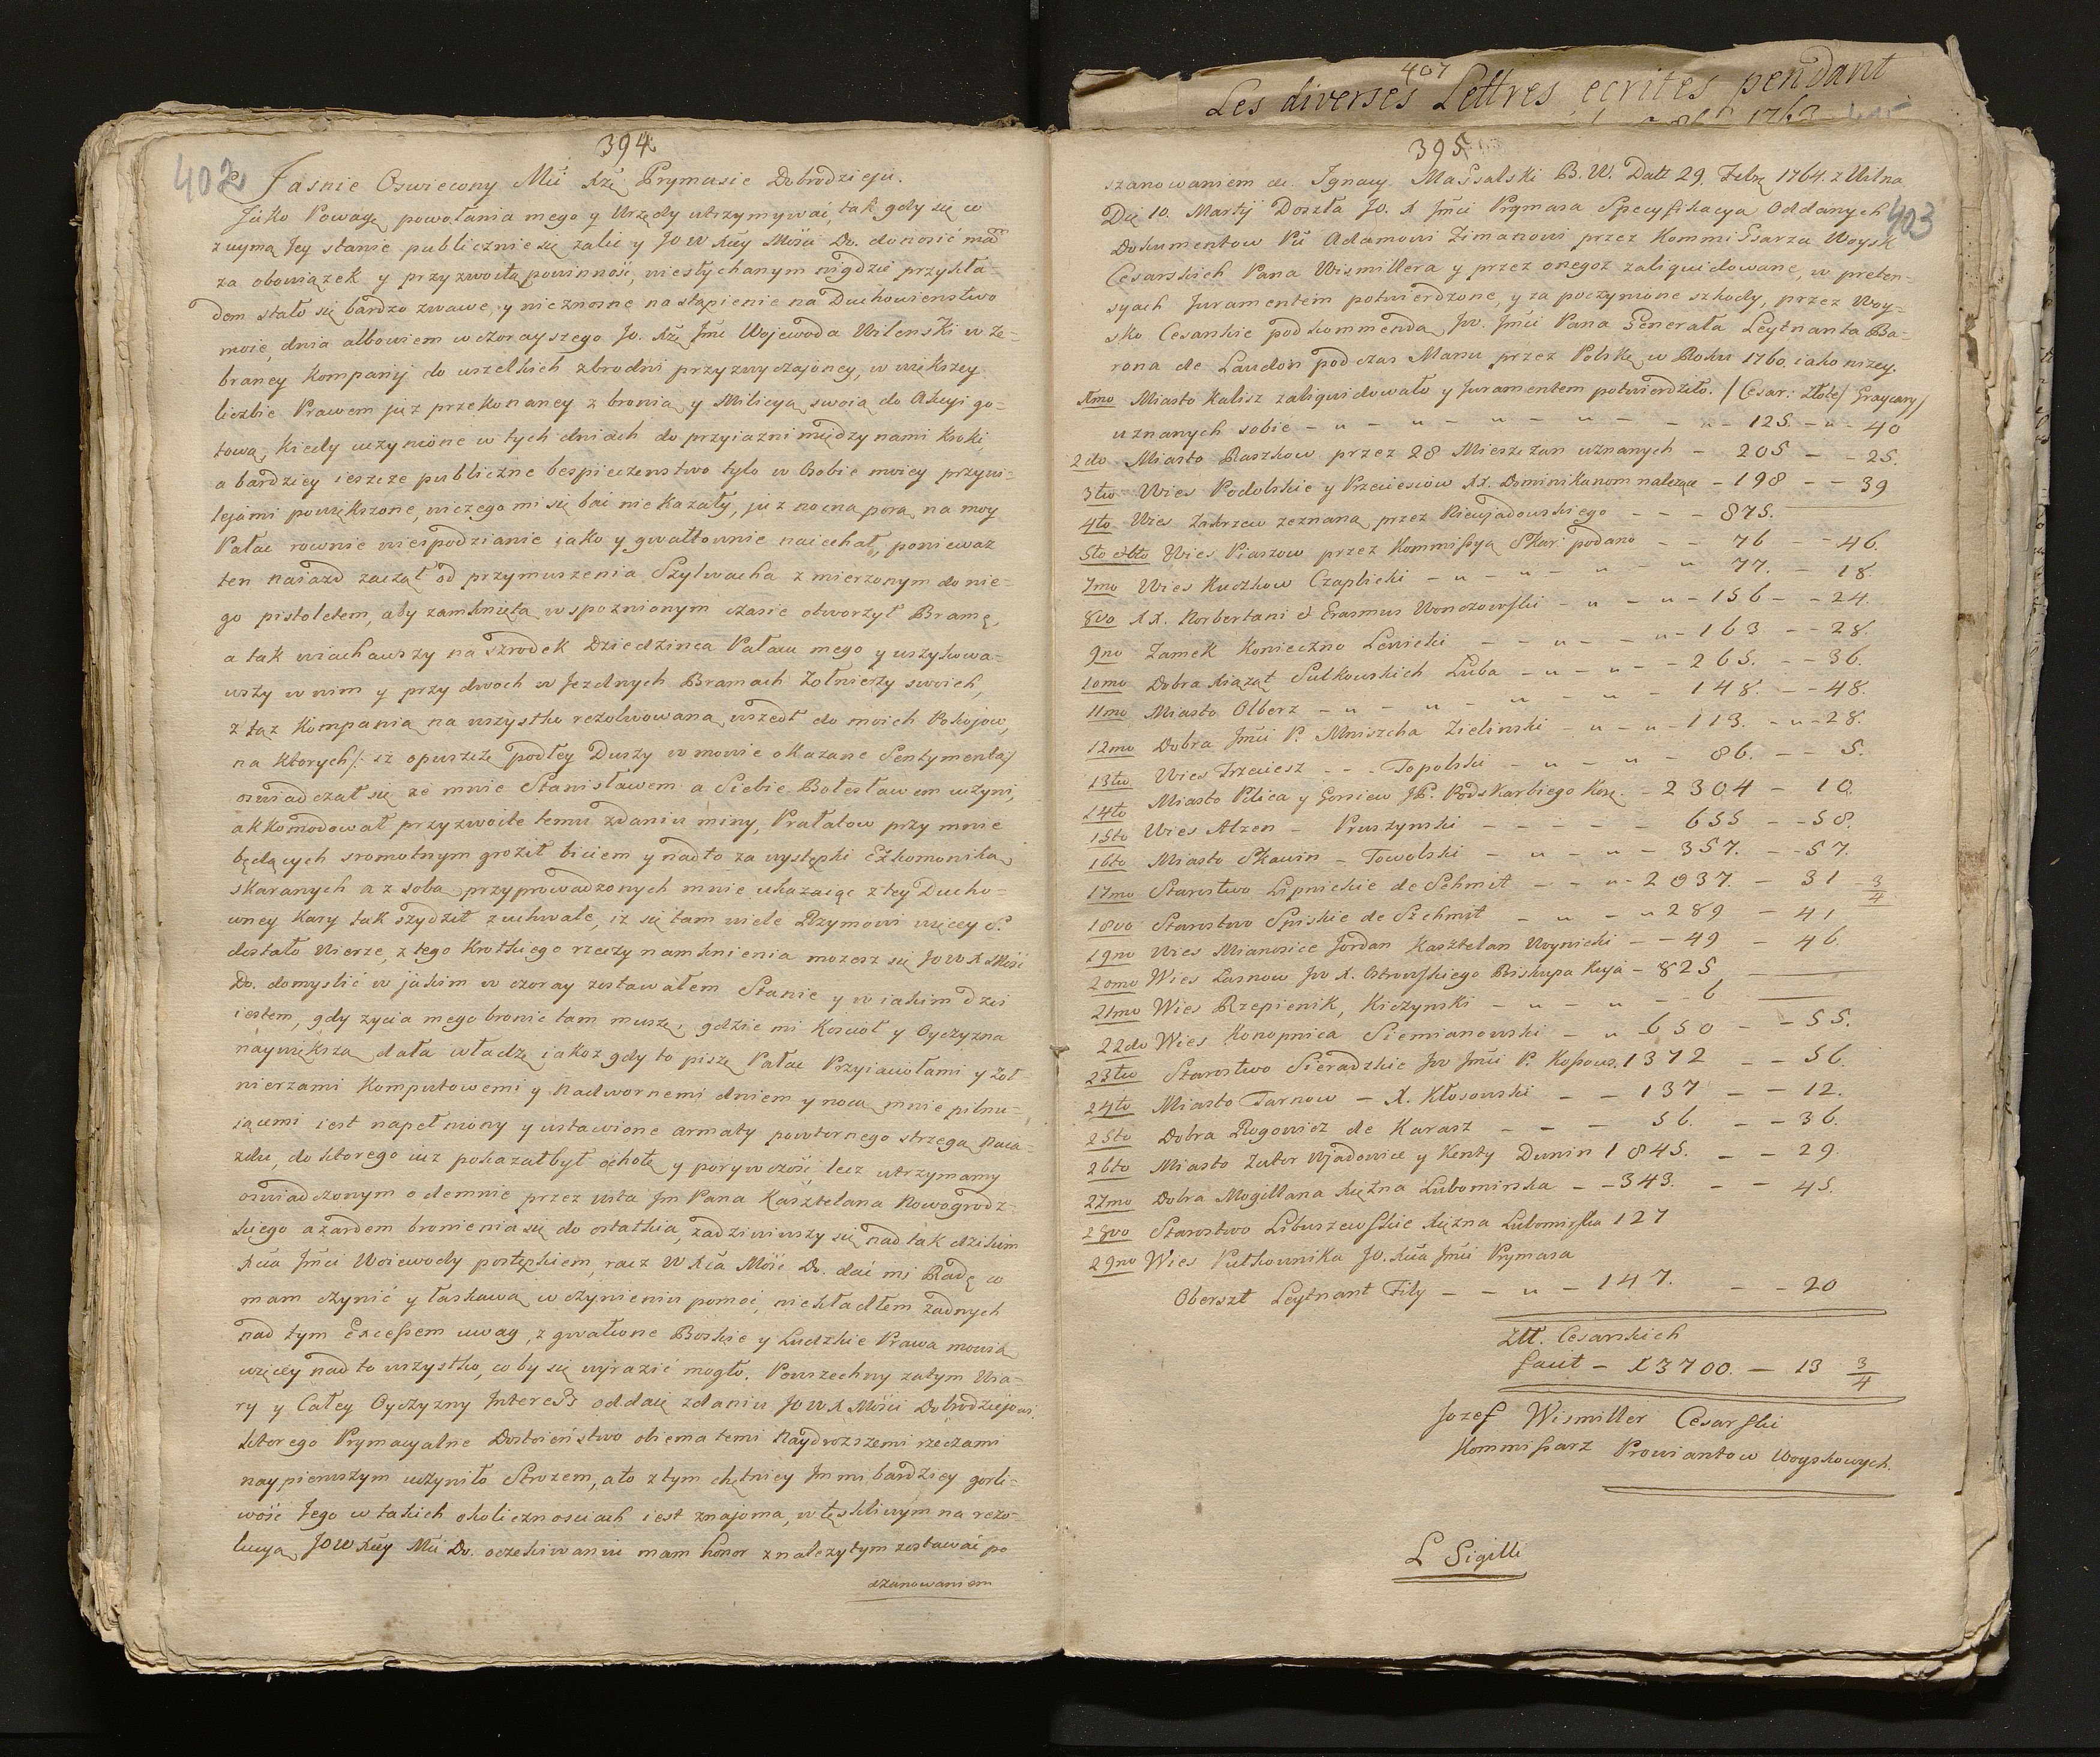 394
402
Jasnie Oswiecony Mći Xże Prymasie Dobrodzieju.
Jako Powagę powołania mego y Urzędy utrzymywać, tak gdy się w
zuymą Jey stanie publicznie się zalić y JO W Xcey Mości Do. donosić mam
za obowiązek y przyzwoitą powinność, niesłychanym nigdzie przykła-
dem stało się bardzo zwawe, y nieznosne nastąpienie na Duchowienstwo
moie, dnia albowiem wczorayszego Jo. Xże Jmć Wojewoda Wilenski w ze-
braney Kompanij do wszelkich zbrodni przyzwyczajoney, w większey
liczbie Prawem już przekonaney z bronią y Milicyą swoią do Akcyi go-
tową, kiedy uczynione w tych dniach do przyiazni między nami Kroki,
a bardziey ieszcze publiczne bespieczenstwo tylo w Osobie moiey przywi-
lejami powiększone, niczego mi się bać nie kazały, już nocną porą na moy
Pałac rownie niespodzianie iako y gwałtownie naiechał, poniewaz
ten naiazd zaczął od przymuszenia Szylwacha zmierzonym do nie-
go pistoletem, aby zamknięta w spoznionym czasie otworzył Bramę,
a tak wiachawszy na szrodek Dziedzinca Pałacu mego y uszykowa-
wszy w nim y przy dwoch wJezdnych Bramach Zołnierzy swoich,
z tąz Kompanią na wszystko rezolwowaną wszedł do moich Pokojow,
na ktorych /: iż opuszczę podłey Duszy w mowie okazane Sentymenta/
oswiadczał się ze mnie Stanisławem a Siebie Bolesławem uczyni,
akkomodował przyzwoite temu zdaniu miny, Prałatow przy mnie
będących sromotnym groził biciem y nadto za występki Exkomoniką
skaranych a z sobą przyprowadzonych mnie ukazaięc z tey Ducho-
wney Kary tak szydził zuchwale, iz się tam wiele Rzymowi więcey S.
dostało Wierze, z tego Krotkiego rzeczy namknienia mozesz się JO W X Mość
Do. domyslić w jakim wczoray zostawałem Stanie y w iakim dziś
iestem, gdy zycia mego bronić tam muszę, gdzie mi Kościoł y Oyczyzna
naywiększą dała władzę iakoz gdy to piszę Pałac Przyiaciołami y Zoł-
nierzami Komputowemi y Nadwornemi dniem y nocą mnie pilnu-
iącemi iest napełniony y ustawione armaty powtornego strzegą Naia-
zdu, do ktorego iuz pokazał był ochotę y porywczość lecz utrzymany
oswiadczonym odemnie przez usta Jm Pana Kasztelana Nowogrodz-
kiego azardem bronienia się do ostatkia, zadziwiwszy się nad tak dzikim
Xcia Jmći Woiewody postępkiem, racz W Xcia Mość Do. dać mi Radę co
mam czynić y łaskawą w czynieniu pomoc, niekładłem żadnych
nad tym Excessem uwag, zgwałcone Boskie y Ludzkie Prawa mowią
więcey nad to wszystko, co by się wyrazić mogło. Powszechny zatym Wia-
ry y Całey Oyczyzny Interess oddaię zdaniu JO W X Mości Dobrodziejowi
ktorego Prymacyalne Dostoieństwo obiema temi Naydroższemi rzeczami
naypierwszym uczyniło Strozem, a to z tym chętniey Im mi bardziey gorli-
wość Jego w takich okolicznosciach iest znajoma, w tęskliwym na rezo-
lucyą JO W Xcey Mci Do. oczekiwaniu mam honor z należytym zostawać po
szanowaniem
407
Les diverses Lettres ecrites pendant
1763
395
403
szanowaniem de. Ignacy Massalski B. W. Datt 29. Febrą 1764. z Wilna
Dię 10. Martij Doszła Jo. X Jmći Prymasa Specyfikacya Oddanych
Dokumentow Pu Adamowi Zimanowi przez Kommissarza Woysk
Cesarskich Pana Wismillera y przez onegoz zaliquidowane, w preten-
syach Juramentem potwierdzone, y za poczynione szkody, przez Woy-
sko Cesarskie pod kommendą Jw. Jmći Pana Generała Leytnanta Ba-
rona de Laudon podczas Marszu przez Polskę w Roku 1760. iako nizey.
1mo Miasto Kalisz zaliquidowało y Juramentem potwierdziło. /Cesar: Złote/ Graycary/
uznanych sobie - " - " - " - " - 125. - " - 40
2do Miasto Raszkow przez 28 Mieszczan uznanych - 205 - - 25.
3tio Wies Podolskie y Przeciesiow XX. Dominikanom nalezące - 198 - - 39
4to Wies Zakrzew zeznana przez Niewjadowskiego - - - 875.
5to et 6to Wies Piaszow przez Kommissyą Skar: podano - - 76 - - 46.
7mo Wies Kuczkow Czaplicki - " - " - " - " 77. - 18.
8vo XX. Norbertani et Erasmus Wonczowski - " - " - 156 - - 24.
9no Zamek Konieczno Lewicki - - " - - " - 163 - - 28.
10mo Dobra Xiąząt Sulkowskich Luba - " - " - - 265. - - 36.
11mo Miasto Olberz - " - " - " - " - 148. - - 48.
12mo Dobra Jmći P. Mniszcha Zielinski - " - " - 113. - " - 28.
13tio Wies Trzeciesz - - - Topolski - " - " - 86. - - 5.
14to Miasto Pilica y Gorsiew JP. Podskarbiego Kor. - 2304 - 10.
15to Wies Alzen - Pruszynski - - - - - 655 - - 58.
16to Miasto Skawin - Towolski - " - " - 357. - - 57.
17mo Starostwo Lipnickie de Schmit - - " - 2037. - 31 3/4
18vo Starostwo Spiskie de Schmit - " - " 289 - 41
19no Wies Mianosice Jordan Kasztelan Woynicki - - 49 - 46.
20mo Wies Lusnow Jw X. Ostrowskiego Biskupa Kuja - 825
21mo Wies Rzepienik, Kiczynski - " - " - - 6
22do Wies Konopnica Siemianowski - " - 650 - - 55.
23tio Starostwo Sieradzkie Jw Jmći P. Kossows. 1372 - - 56.
24to Miasto Tarnow - X. Kłosowski - - 137 - - 12.
25to Dobra Rogowicz de Karasz - - - 56. - - 36.
26to Miasto Zator Wjadowice y Kenty Dunin 1845. - - 29.
27mo Dobra Mogillana Xiężna Lubomirska - - 343. - - 45.
28vo Starostwo Libuszewskie Xiężna Lubomirska 127
29no Wies Pułkownika Jo. Xcia Jmći Prymasa
Oberszt Leytnant Fily - - " - 147. - - 20
Złł. Cesarskich
facit - 13700. - 13 3/4
Jozef Wismiller Cesarski
Kommissarz Prowiantow Woyskowych.
L Sigilli